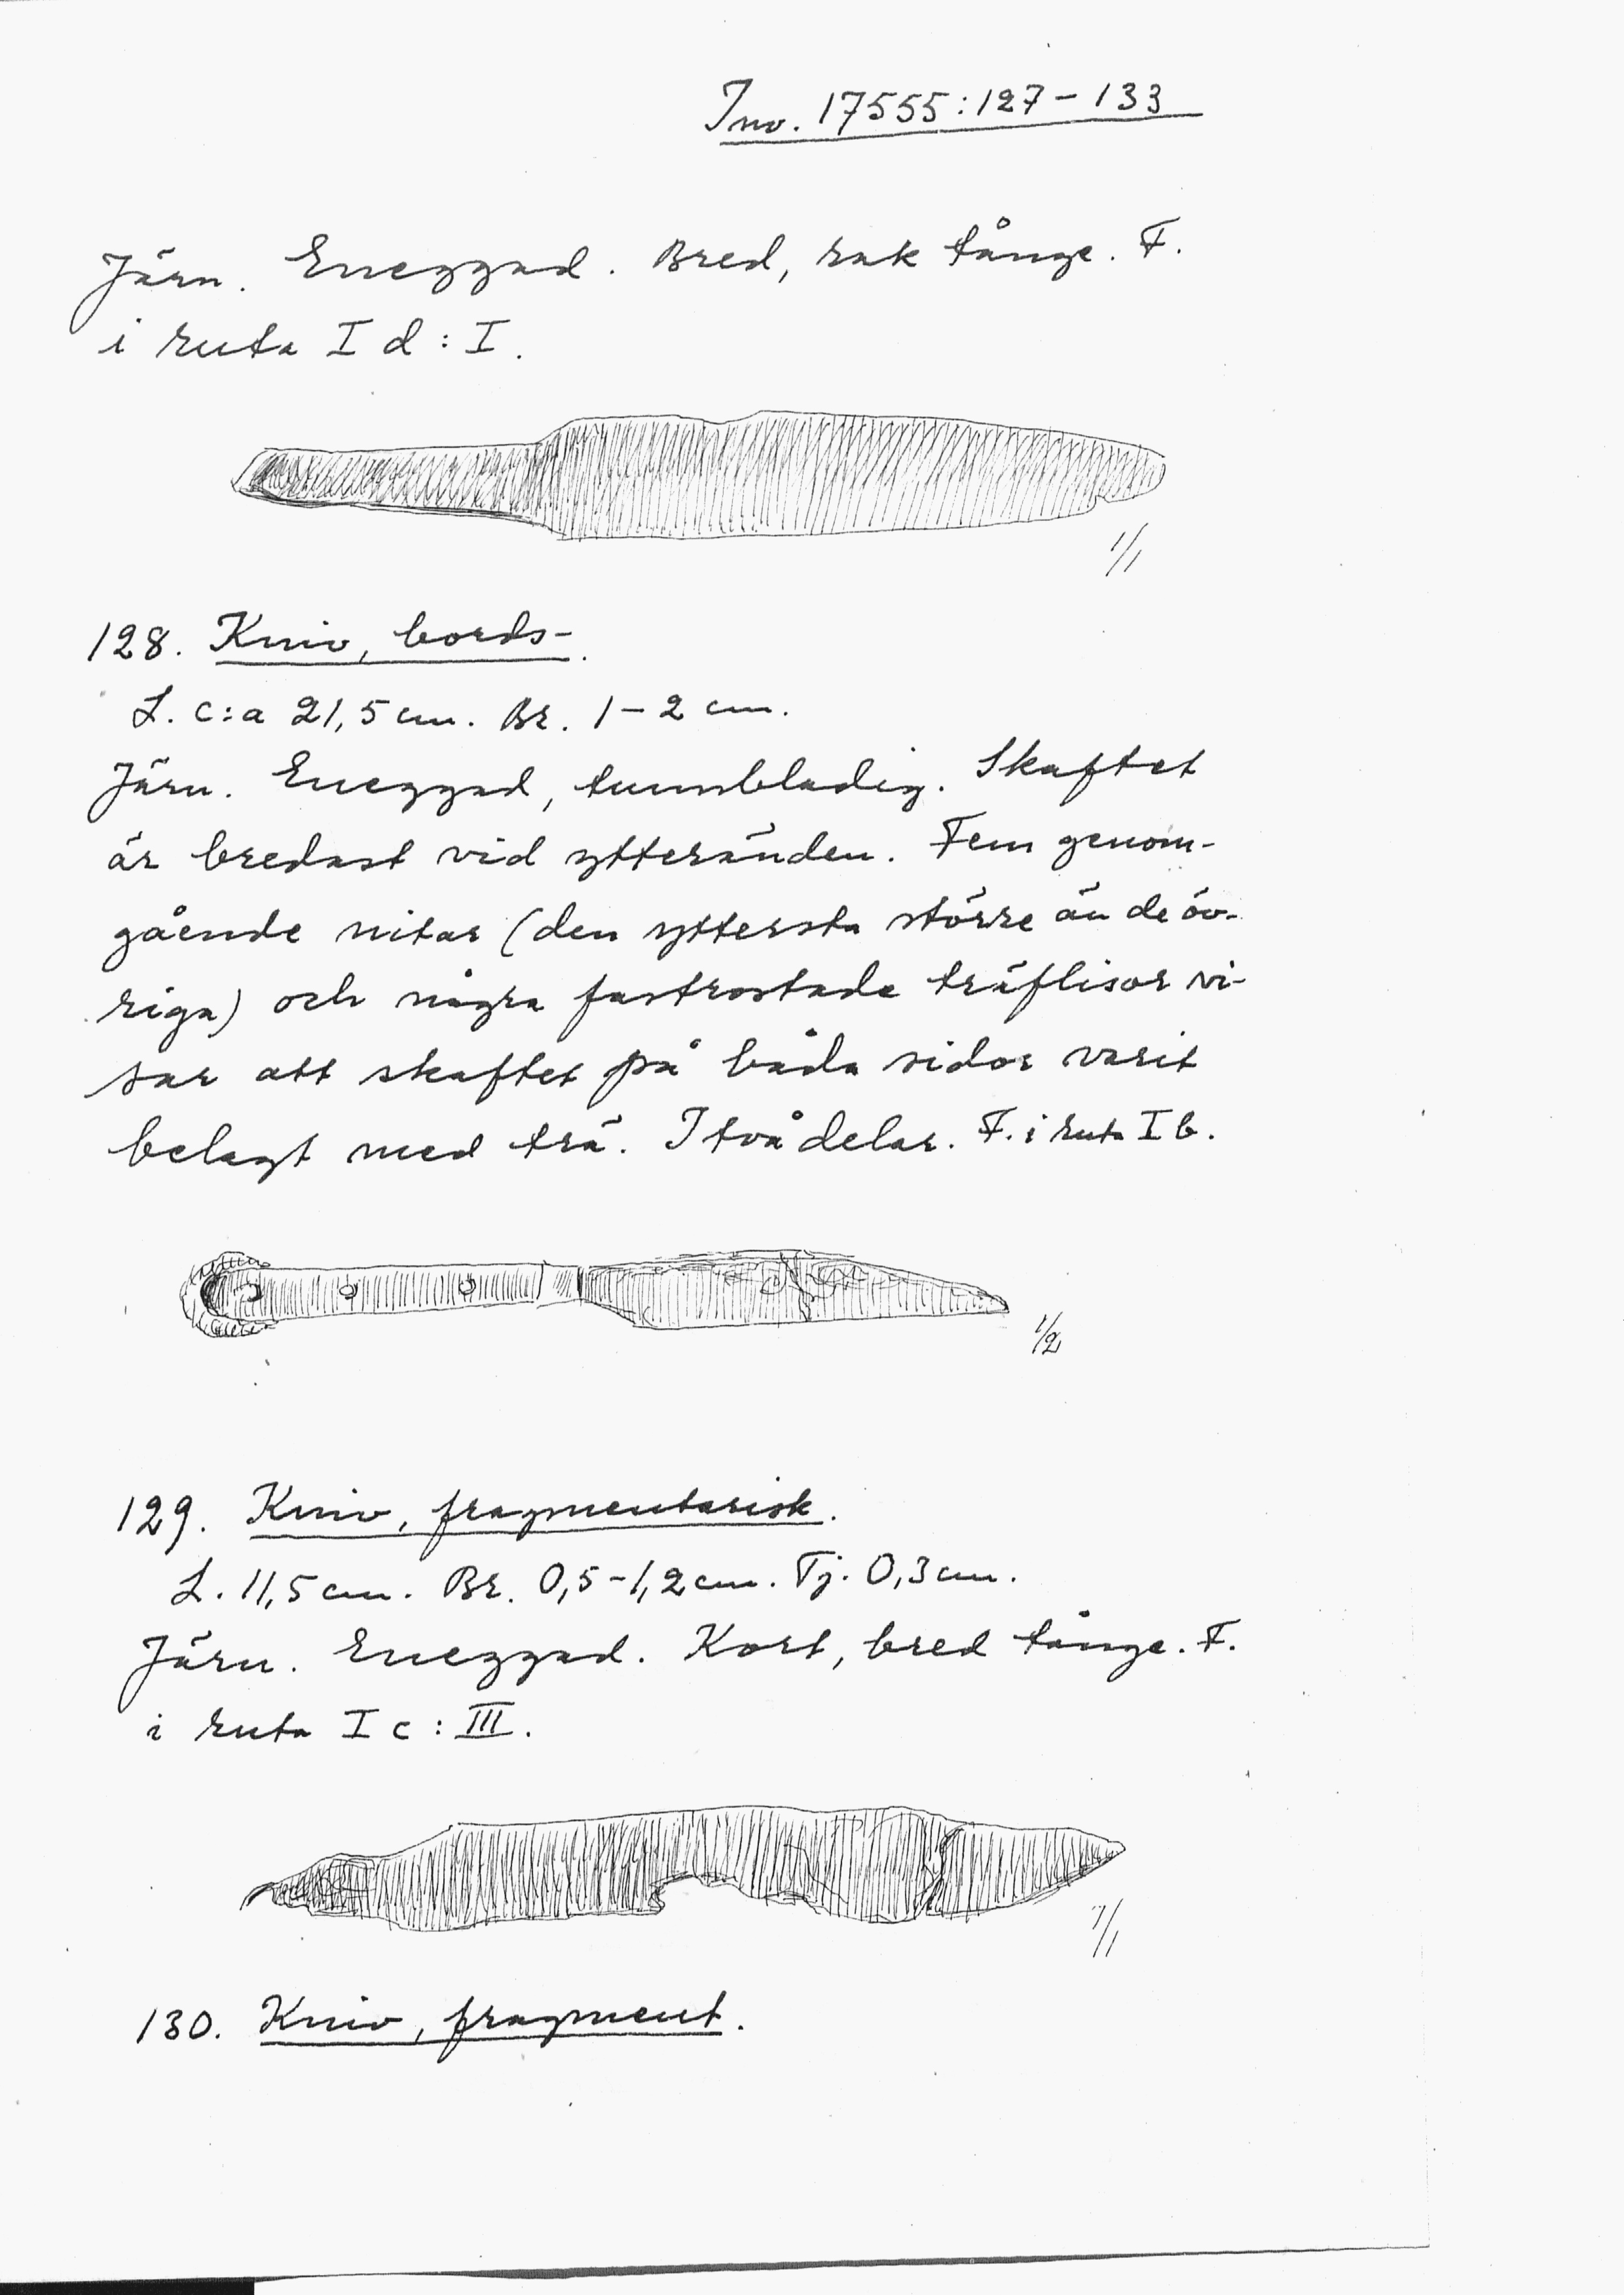 Inv. 17555:127-133
Järn. Eneggad. Bred, rak tånge. F.
i ruta I d : I.
1/1
128. Kniv, bords-.
L. c:a 21,5 cm. Br. 1-2 cm.
Järn. Eneggad, tunnbladig. Skaftet
är bredast vid ytteränden. Fem genom-
gående nitar (den yttersta större än de öv-
riga) och några fastrostade träflisor vi-
sar att skaftet på båda sidor varit
belagt med trä. I två delar. F. i ruta I b.
1/2
129. Kniv, fragmentarisk.
L. 11,5 cm. Br. 0,5-1,2 cm. Tj. 0,3 cm.
Järn. Eneggad. Kort, bred tånge. F.
i ruta I c : III.
1/1
130. Kniv, fragment.